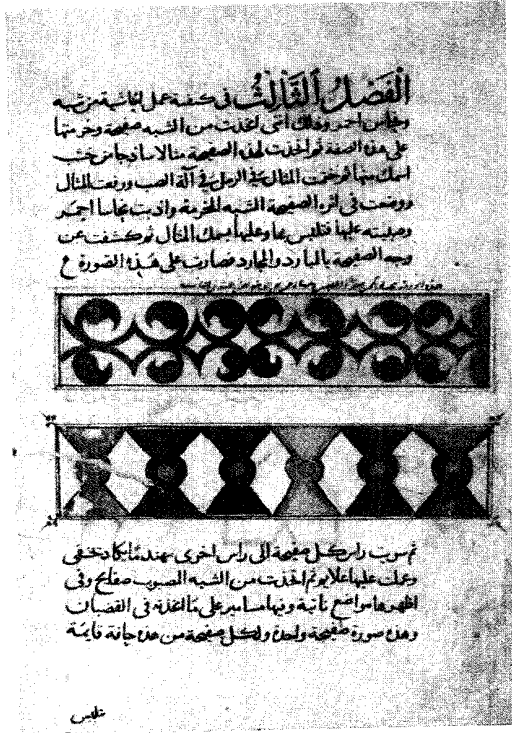 الْفَصْلُ الثَّالِثُ في كيفية عمل الحاشية من شبه
ونحاس احمر وذلك انني اتخذت من الشبه صفيحة وخرمتها
على هذه الصفة ثم اتخذت لهذه الصفيحة مثالا ساذجا من خشب
اسمك منها ثم ختمت المثال في الرمل في آلة الصب ورفعت المثال
ووضعت في اثره الصفيحة الشبه المخرمة واذبت نحاسا احمر
وصببته عليها فتلبس بها وعليها اسمك المثال ثم كشفت عن
وجه الصفيحة بالبارد والمجارد فصارت على هذه الصورة
ثم سويت راس كل صفيحة الى راس اخرى بهندمة يكاد تخفى
وعملت عليها علايم ثم اتخذت من الشبه المصبوب صفايح وفى
اظهرها مواضع ناتية وفيها مسامير على ما اتخذته فى القضبان
وهذه صورة صفيحة واحدة ولكل صفيحة من هذه حافة قايمة